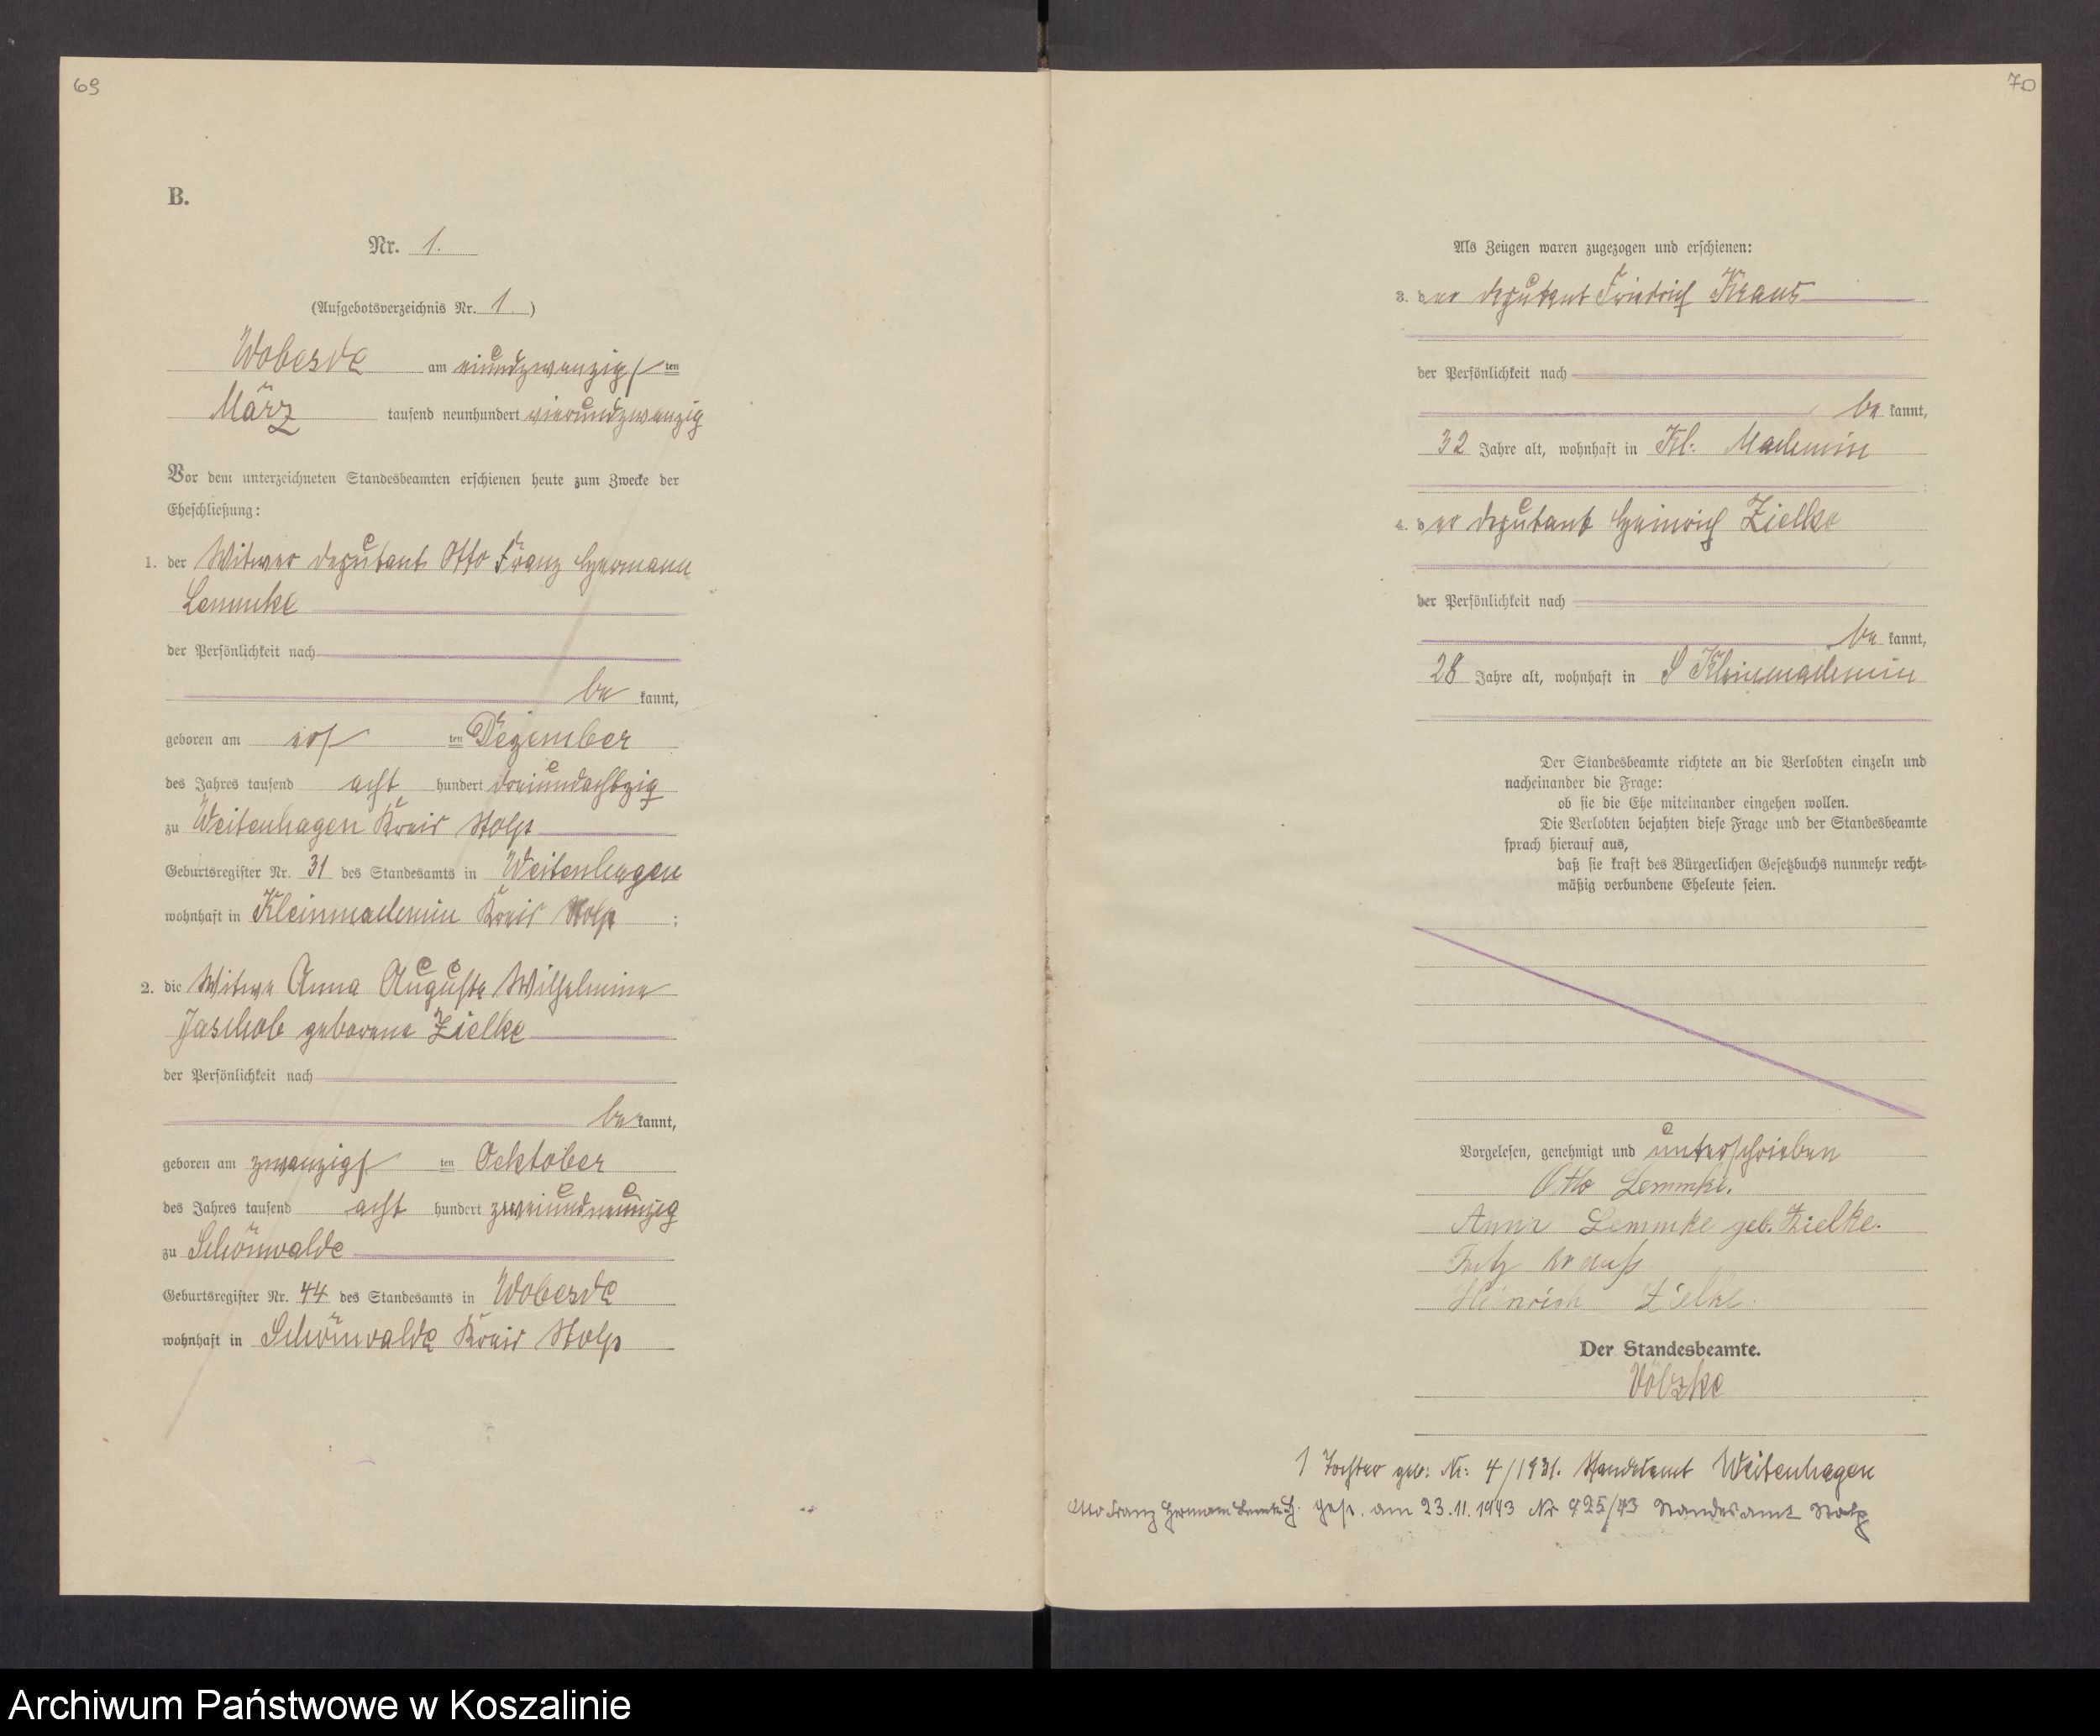 69
B.
Nr. 1.
(Aufgebotsverzeichnis Nr. 1.)
Wobesde am einundzwanzigsten
März tausend neunhundert vierundzwanzig
Vor dem unterzeichneten Standesbeamten erschienen heute zum Zwecke der
Eheschließung:
1. der Witwer Deputant Otto Franz Hermann
Lemmke
der Persönlichkeit nach
be kannt,
geboren am ersten Dezember
des Jahres tausend acht hundert dreiundachtzig
zu Weitenhagen Kreis Stolp
Geburtsregister Nr. 31 des Standesamts in Weitenhagen
wohnhaft in Kleinmachmin Kreis Stolp ;
2. die Witwe Anna Auguste Wilhelmine
Jaschob geborene Zielke
der Persönlichkeit nach
be kannt,
geboren am zwanzigsten Ocktober
des Jahres tausend acht hundert zweiundneunzig
zu Schönwalde
Geburtsregister Nr. 44 des Standesamts in Wobesde
wohnhaft in Schönwalde Kreis Stolp
70
Als Zeugen waren zugezogen und erschienen:
3. der Deputant Friedrich Kraus
der Persönlichkeit nach
be kannt,
32 Jahre alt, wohnhaft in Kl. Machmin
4. der Deputant Heinrich Zielke
der Persönlichkeit nach
be kannt,
28 Jahre alt, wohnhaft in Kleinmachmin
Der Standesbeamte richtete an die Verlobten einzeln und
nacheinander die Frage:
ob sie die Ehe miteinander eingehen wollen.
Die Verlobten bejahten diese Frage und der Standesbeamte
sprach hierauf aus,
daß sie kraft des Bürgerlichen Gesetzbuchs nunmehr recht-
mäßig verbundene Eheleute seien.
Vorgelesen, genehmigt und unterschrieben
Otto Lemmke.
Anna Lemmke geb. Zielke.
Fritz Krauß
Heinrich Zielke.
Der Standesbeamte.
Völzke
1 Tochter geb: Nr: 4/1931. Standesamt Weitenhagen
Otto Franz Hermann Lemke gest. am 23.11.1943 Nr 425/43 Standesamt Stolp
Archiwum Państwowe w Koszalinie